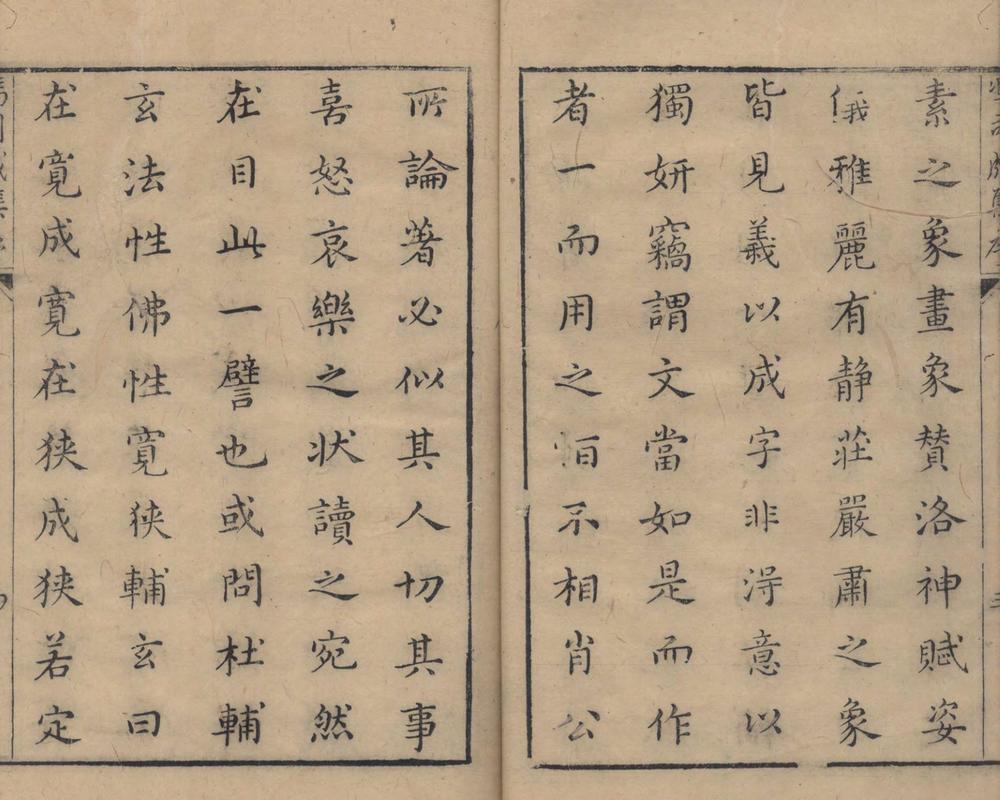 素之象畫象贊洛神賦姿
俄雅麗有靜莊嚴肅之象
皆見義以成字非淂意以
獨妍竊謂文當如是而作
者一而用之恒不相肖公
所論著必似其人切其事
喜怒哀樂之狀讀之宛然
在目此一譬也或問杜輔
玄法性佛性寬狹輔玄曰
在寬成寬在狹成狹若定